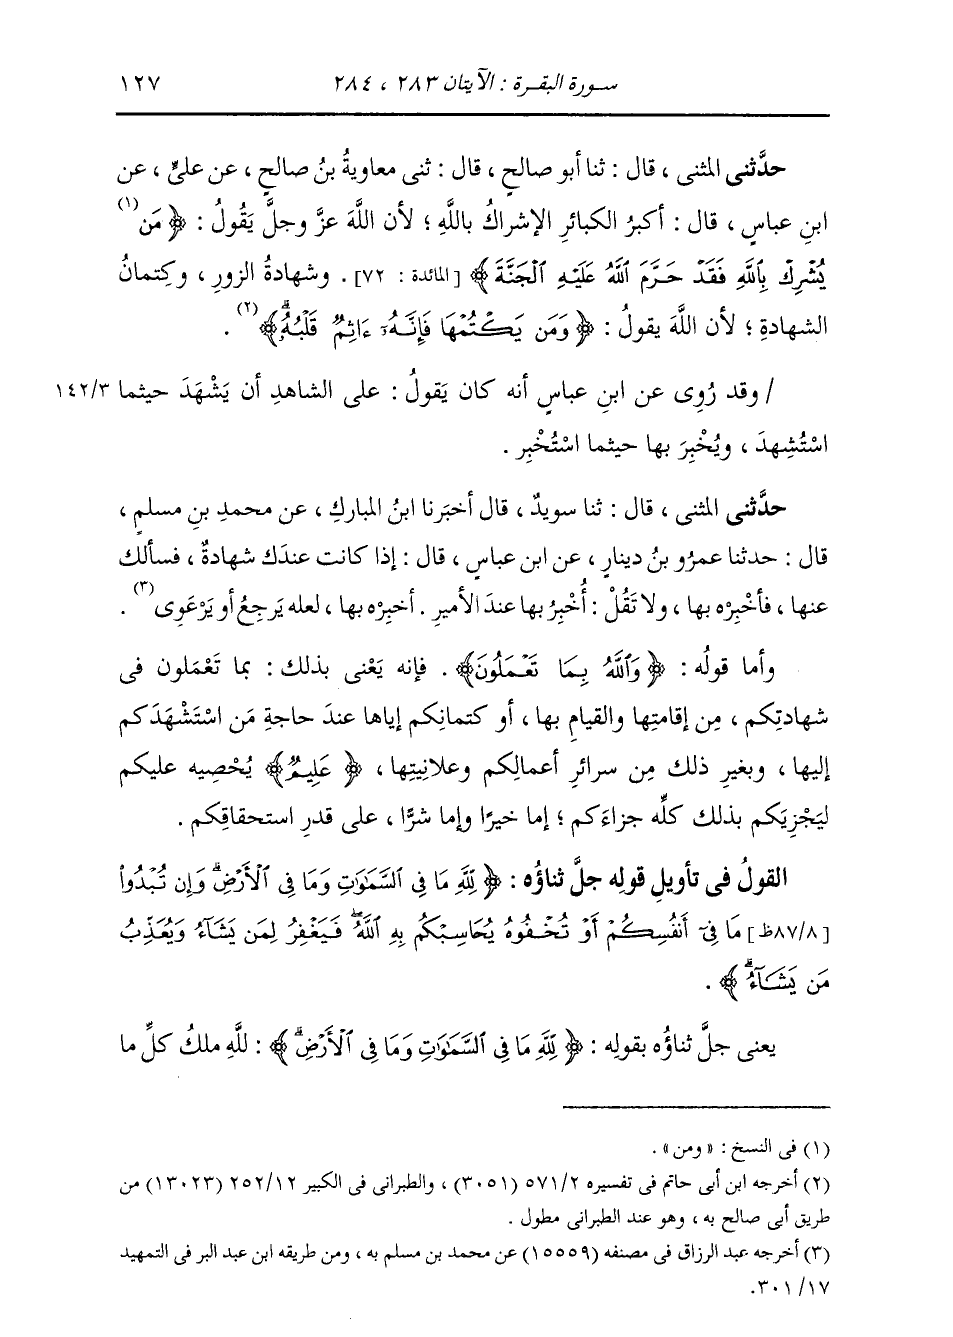 سورة البقرة : الآيتان ٢٨٣ ، ٢٨٤ ١٢٧
حدَّثنى المثنى ، قال : ثنا أبو صالحٍ ، قال : ثنى معاويةُ بنُ صالحٍ ، عن علىٍّ ، عن
ابنِ عباسٍ ، قال : أكبرُ الكبائرِ الإشراكُ باللَّهِ ؛ لأن اللَّهَ عزَّ وجلَّ يَقُولُ : ﴿ مَن(١)
يُشْرِكْ بِٱللَّهِ فَقَدْ حَرَّمَ ٱللَّهُ عَلَيْهِ ٱلْجَنَّةَ ﴾ [المائدة : ٧٢] . وشهادةُ الزورِ ، وكتمانُ
الشهادةِ ؛ لأن اللَّهَ يقولُ : ﴿ وَمَن يَكْتُمْهَا فَإِنَّهُۥٓ ءَاثِمٌ قَلْبُهُۥۗ ﴾(٢) .
/ وقد رُوِى عن ابنِ عباسٍ أنه كان يَقولُ : على الشاهدِ أن يَشْهَدَ حيثما ١٤٢/٣
اسْتُشهِدَ ، ويُخْبِرَ بها حيثما اسْتُخْبِر .
حدَّثنى المثنى ، قال : ثنا سويدٌ ، قال أخبَرنا ابنُ المباركِ ، عن محمدِ بنِ مسلمٍ ،
قال : حدثنا عمرُو بنُ دينارٍ ، عن ابن عباسٍ ، قال : إذا كانت عندَك شهادةٌ ، فسألك
عنها ، فأخْبِرْه بها ، ولا تَقُلْ : أُخْبِرُ بها عندَ الأميرِ . أخبِرْه بها ، لعله يَرجِعُ أو يَرْعَوِى(٣) .
وأما قولُه : ﴿ وَٱللَّهُ بِمَا تَعْمَلُونَ ﴾ . فإنه يَعْنى بذلك : بما تَعْمَلون فى
شهادتِكم ، مِن إقامتِها والقيامِ بها ، أو كتمانِكم إياها عندَ حاجةِ مَن اسْتَشْهَدَكم
إليها ، وبغيرِ ذلك مِن سرائرِ أعمالِكم وعلانِيتِها ، ﴿ عَلِيمٌ ﴾ يُحْصِيه عليكم
ليَجْزِيَكم بذلك كلِّه جزاءَكم ؛ إما خيرًا وإما شرًّا ، على قدرِ استحقاقِكم .
القولُ فى تأويلِ قولِه جلَّ ثناؤُه : ﴿ لِلَّهِ مَا فِى ٱلسَّمَٰوَٰتِ وَمَا فِى ٱلْأَرْضِۗ وَإِن تُبْدُوا۟
[٨٧/٨ظ] مَا فِىٓ أَنفُسِكُمْ أَوْ تُخْفُوهُ يُحَاسِبْكُم بِهِ ٱللَّهُۖ فَيَغْفِرُ لِمَن يَشَآءُ وَيُعَذِّبُ
مَن يَشَآءُۗ ﴾ .
يعنى جلَّ ثناؤُه بقولِه : ﴿ لِلَّهِ مَا فِى ٱلسَّمَٰوَٰتِ وَمَا فِى ٱلْأَرْضِۗ ﴾ : للَّهِ ملكُ كلِّ ما
(١) فى النسخ : « ومن » .
(٢) أخرجه ابن أبى حاتم فى تفسيره ٥٧١/٢ (٣٠٥١) ، والطبرانى فى الكبير ٢٥٢/١٢ (١٣٠٢٣) من
طريق أبى صالح به ، وهو عند الطبرانى مطول .
(٣) أخرجه عبد الرزاق فى مصنفه (١٥٥٥٩) عن محمد بن مسلم به ، ومن طريقه ابن عبد البر فى التمهيد
٣٠١/١٧.